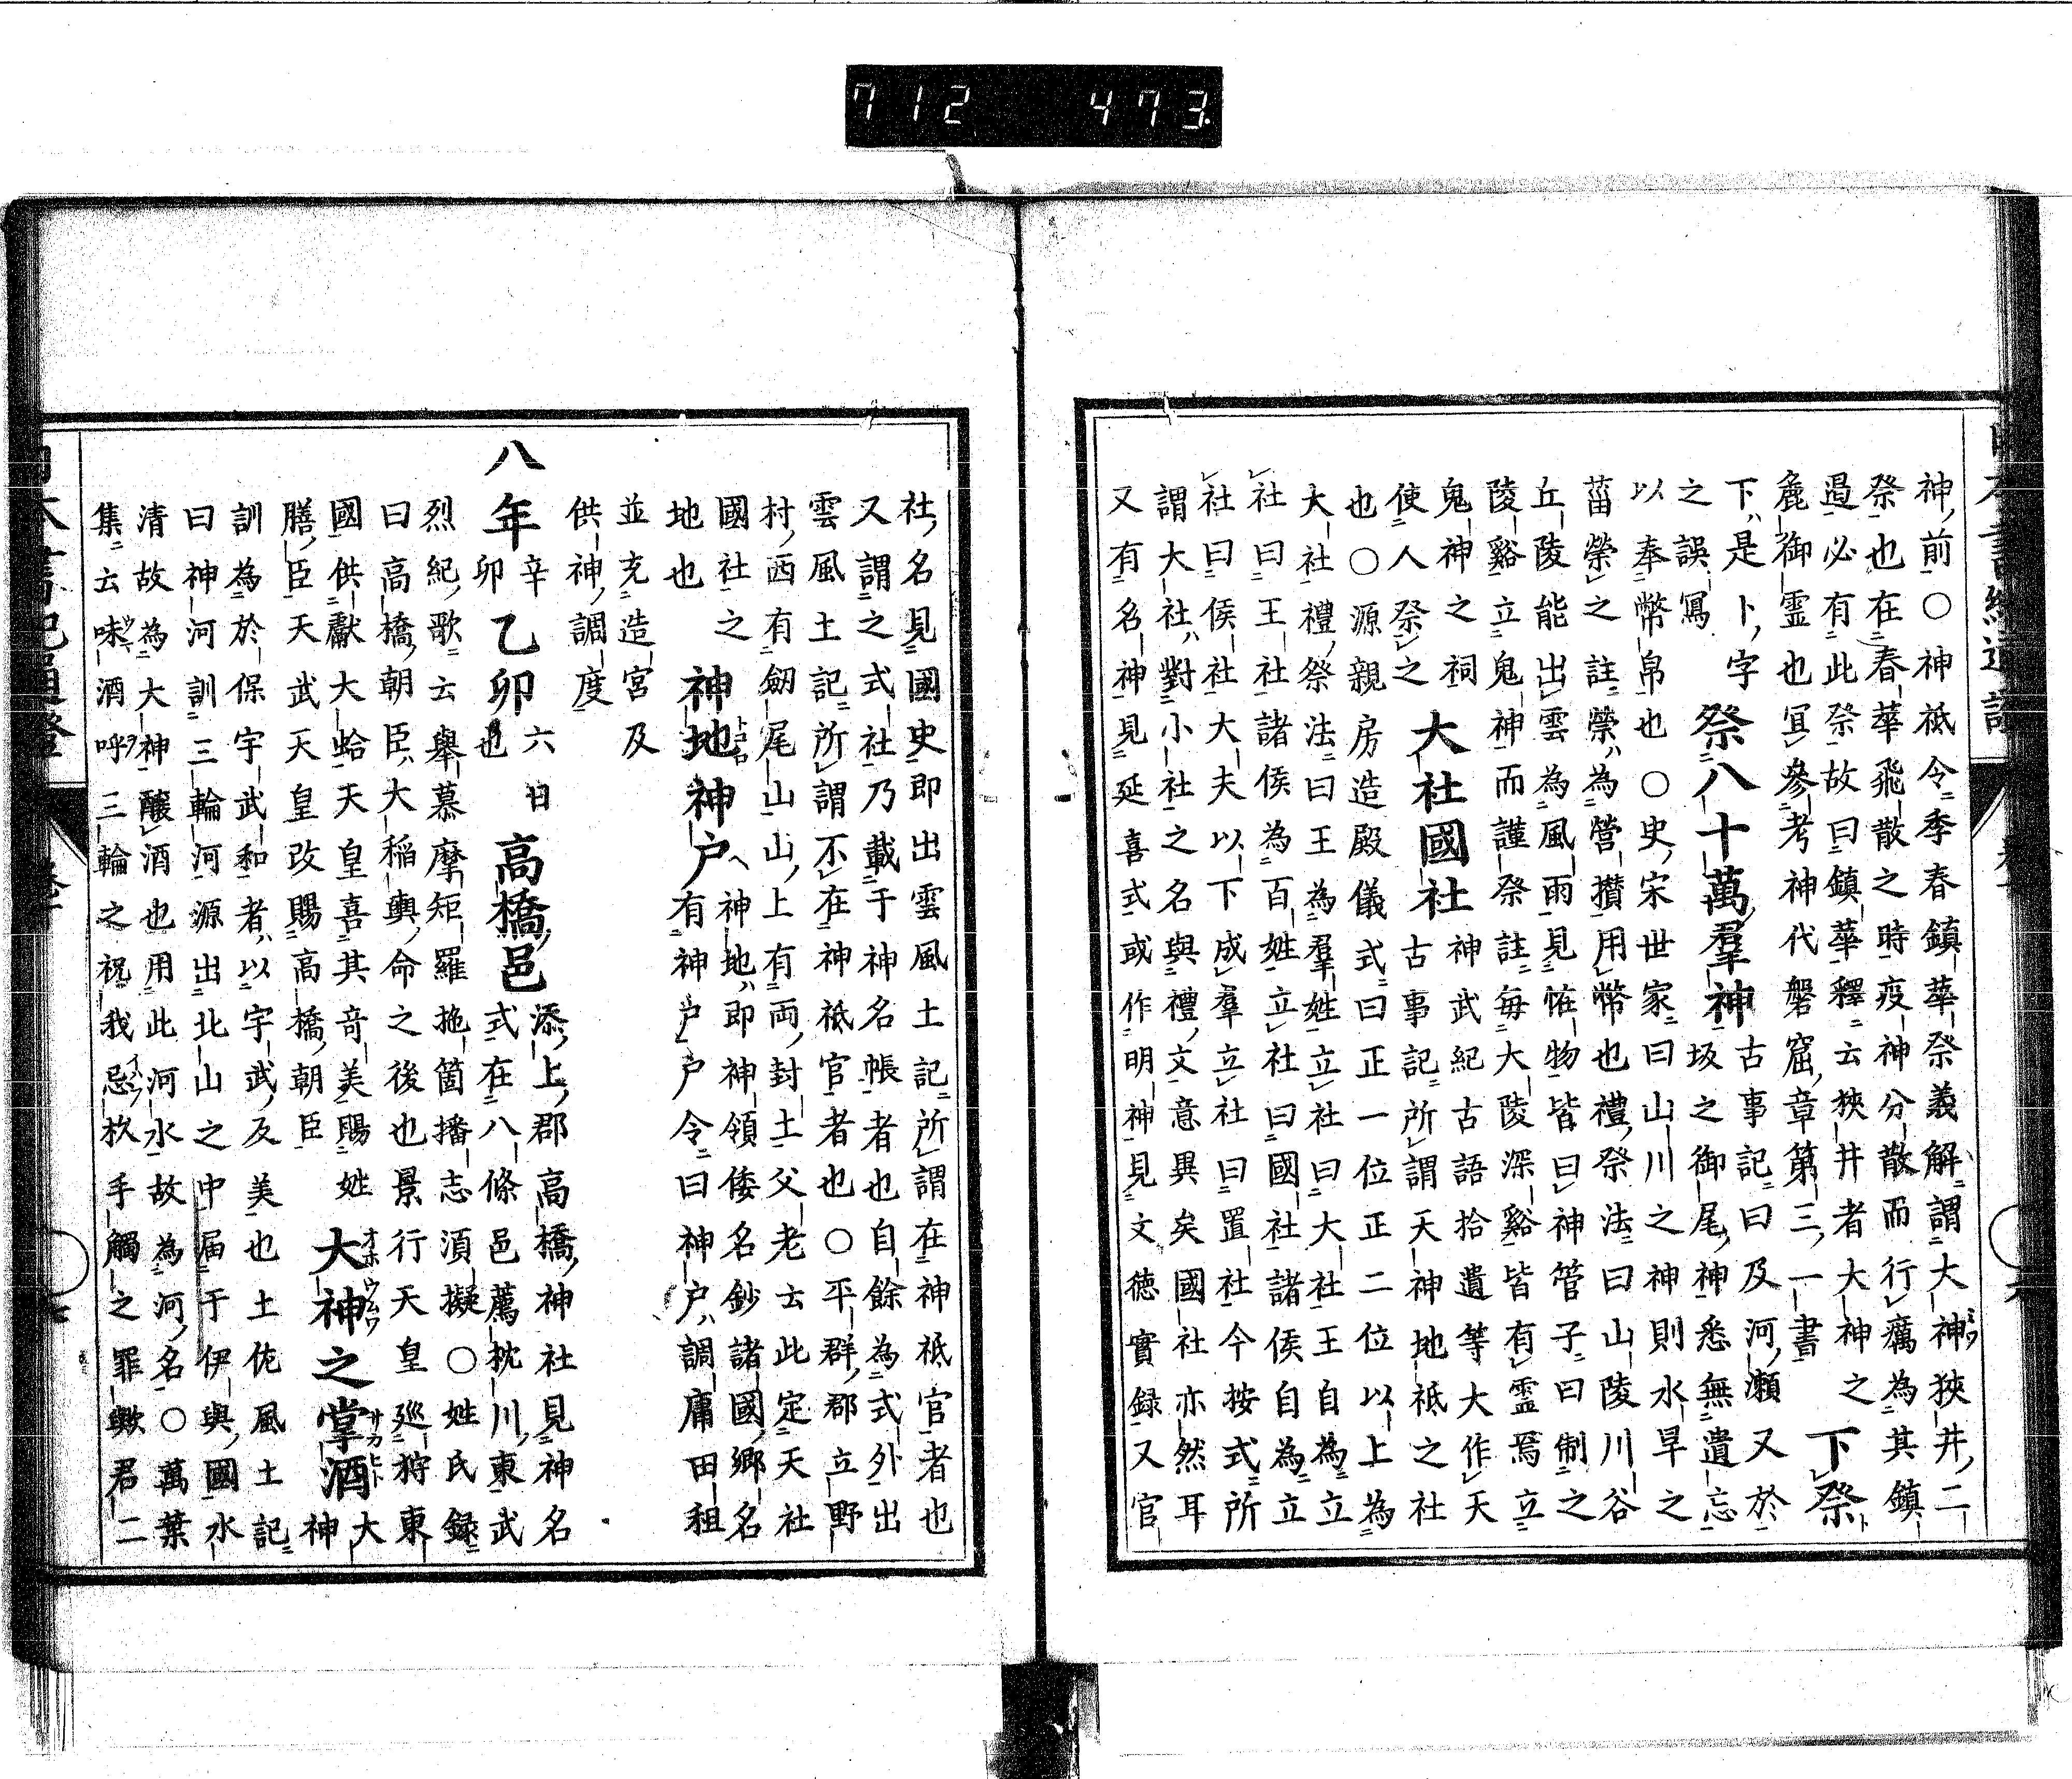 712 473
神前○神祇令季春鎮華祭義解謂大神狹井二
祭也在春華飛散之時疫神分散而行癘為其鎮
遏必有此祭故曰鎮華釋云狹井者大神之
麁御霊也冝參考神代磐窟章第三一書 下祭
下是卜字
之誤寫 祭八十萬羣神 古事記曰及河瀬又於
坂之御尾神悉無遺忘
以奉幣帛也○史宋世家曰山川之神則水旱之
菑榮之註榮為營攢用幣也禮祭法曰山陵川谷
丘陵能出雲為風雨見恠物皆曰神管子曰制之
陵谿立鬼神而謹祭註毎大陵深谿皆有霊焉立
鬼神之祠
使人祭之 大社國社 神武紀古語拾遺等大作天
古事記所謂天神地祇之社
也○源親房造殿儀式曰正一位正二位以上為
大社禮祭法曰王為羣姓立社曰大社王自為立
社曰王社諸侯為百姓立社曰國社諸侯自為立
社曰侯社大夫以下成羣立社曰置社今按式所
謂大社對小社之名與禮文意異矣國社亦然耳
又有名神見延喜式或作明神見文徳實録又官
社名見國史即出雲風土記所謂在神祇官者也
又謂之式社乃載于神名帳者也自餘為式外出
雲風土記所謂不在神祇官者也○平群郡立野
村西有劒尾山山上有両封土父老云此定天社
國社之
地也 神地神戸 神地即神領倭名鈔諸國郷名
有神戸戸令曰神戸調庸田租
並充造宮及
供神調度
八年 辛
卯 乙卯 六日
也 高橋邑 添上郡高橋神社見神名
式在八條邑薦枕川東武
烈紀歌云舉慕摩矩羅拖箇播志須擬○姓氏録
曰高橋朝臣大稲輿命之後也景行天皇廵狩東
國供獻大蛤天皇喜其竒美賜姓
膳臣天武天皇改賜高橋朝臣 大神之掌酒 大
神
訓為於保宇武和者以宇武反美也土佐風土記
曰神河訓三輪河源出北山之中届于伊與國水
清故為大神醸酒也用此河水故為河名○萬葉
集云味酒呼三輪之祝我忌杦手觸之罪歟君二